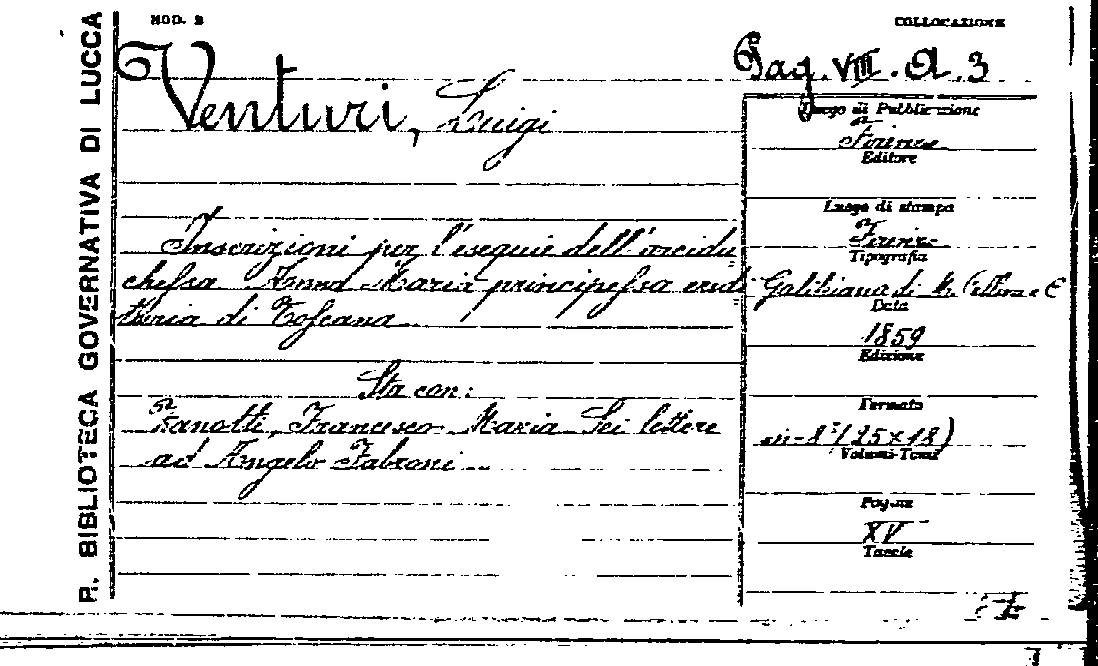 R. BIBLIOTECA GOVERNATIVA DI LUCCA
MOD. 2
COLLOCAZIONE
Pag. VIII. A. 3
Venturi, Luigi
Luogo di Pubblicazione
Firenze
Editore
Luogo di stampa
Inscrizioni per l'esequie dell'arcidu
Firenze
Tipografia
chessa Anna Maria principessa eredi
Galileiana di M. Cellini e C
taria di Toscana
Data
1859
Edizione
Sta con:
Formato
Zanotti, Francesco Maria Sei lettere
in-8° (25x18)
Volumi-Tomi
ad Angelo Fabroni
Pagine
XV
Tavole